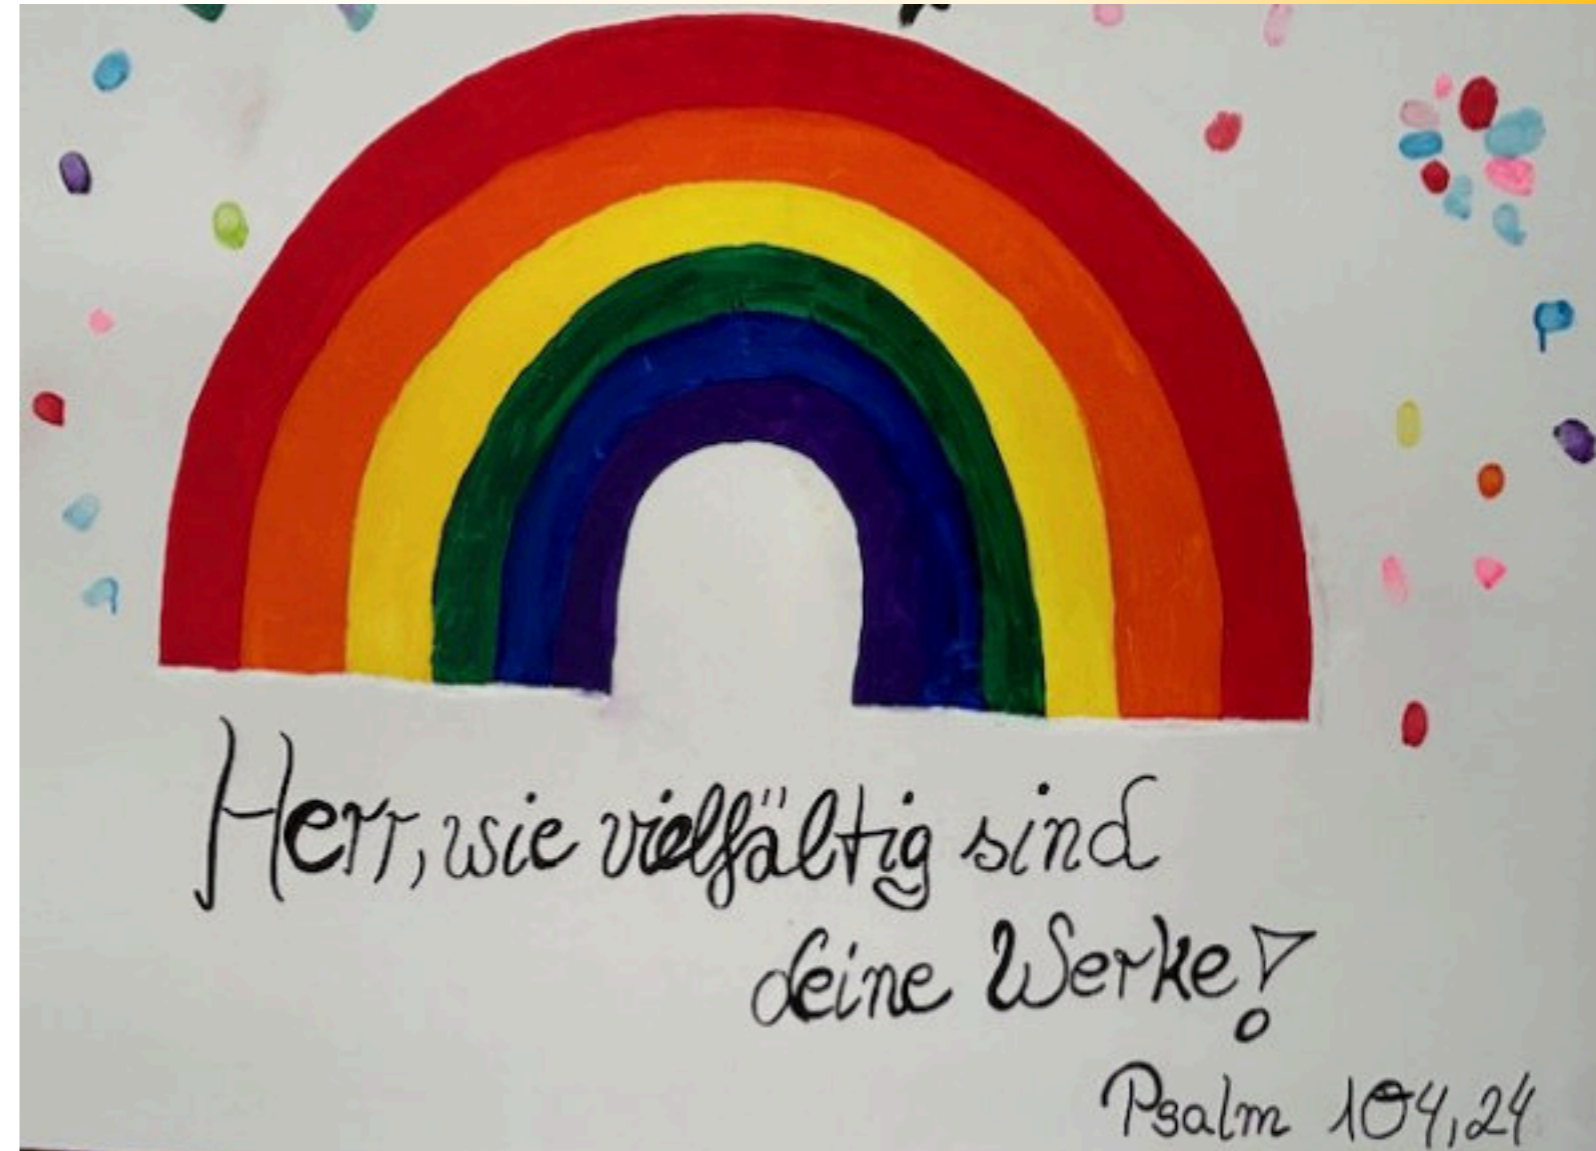 Herr, wie vielfältig sind
deine Werke!
Psalm 104,24